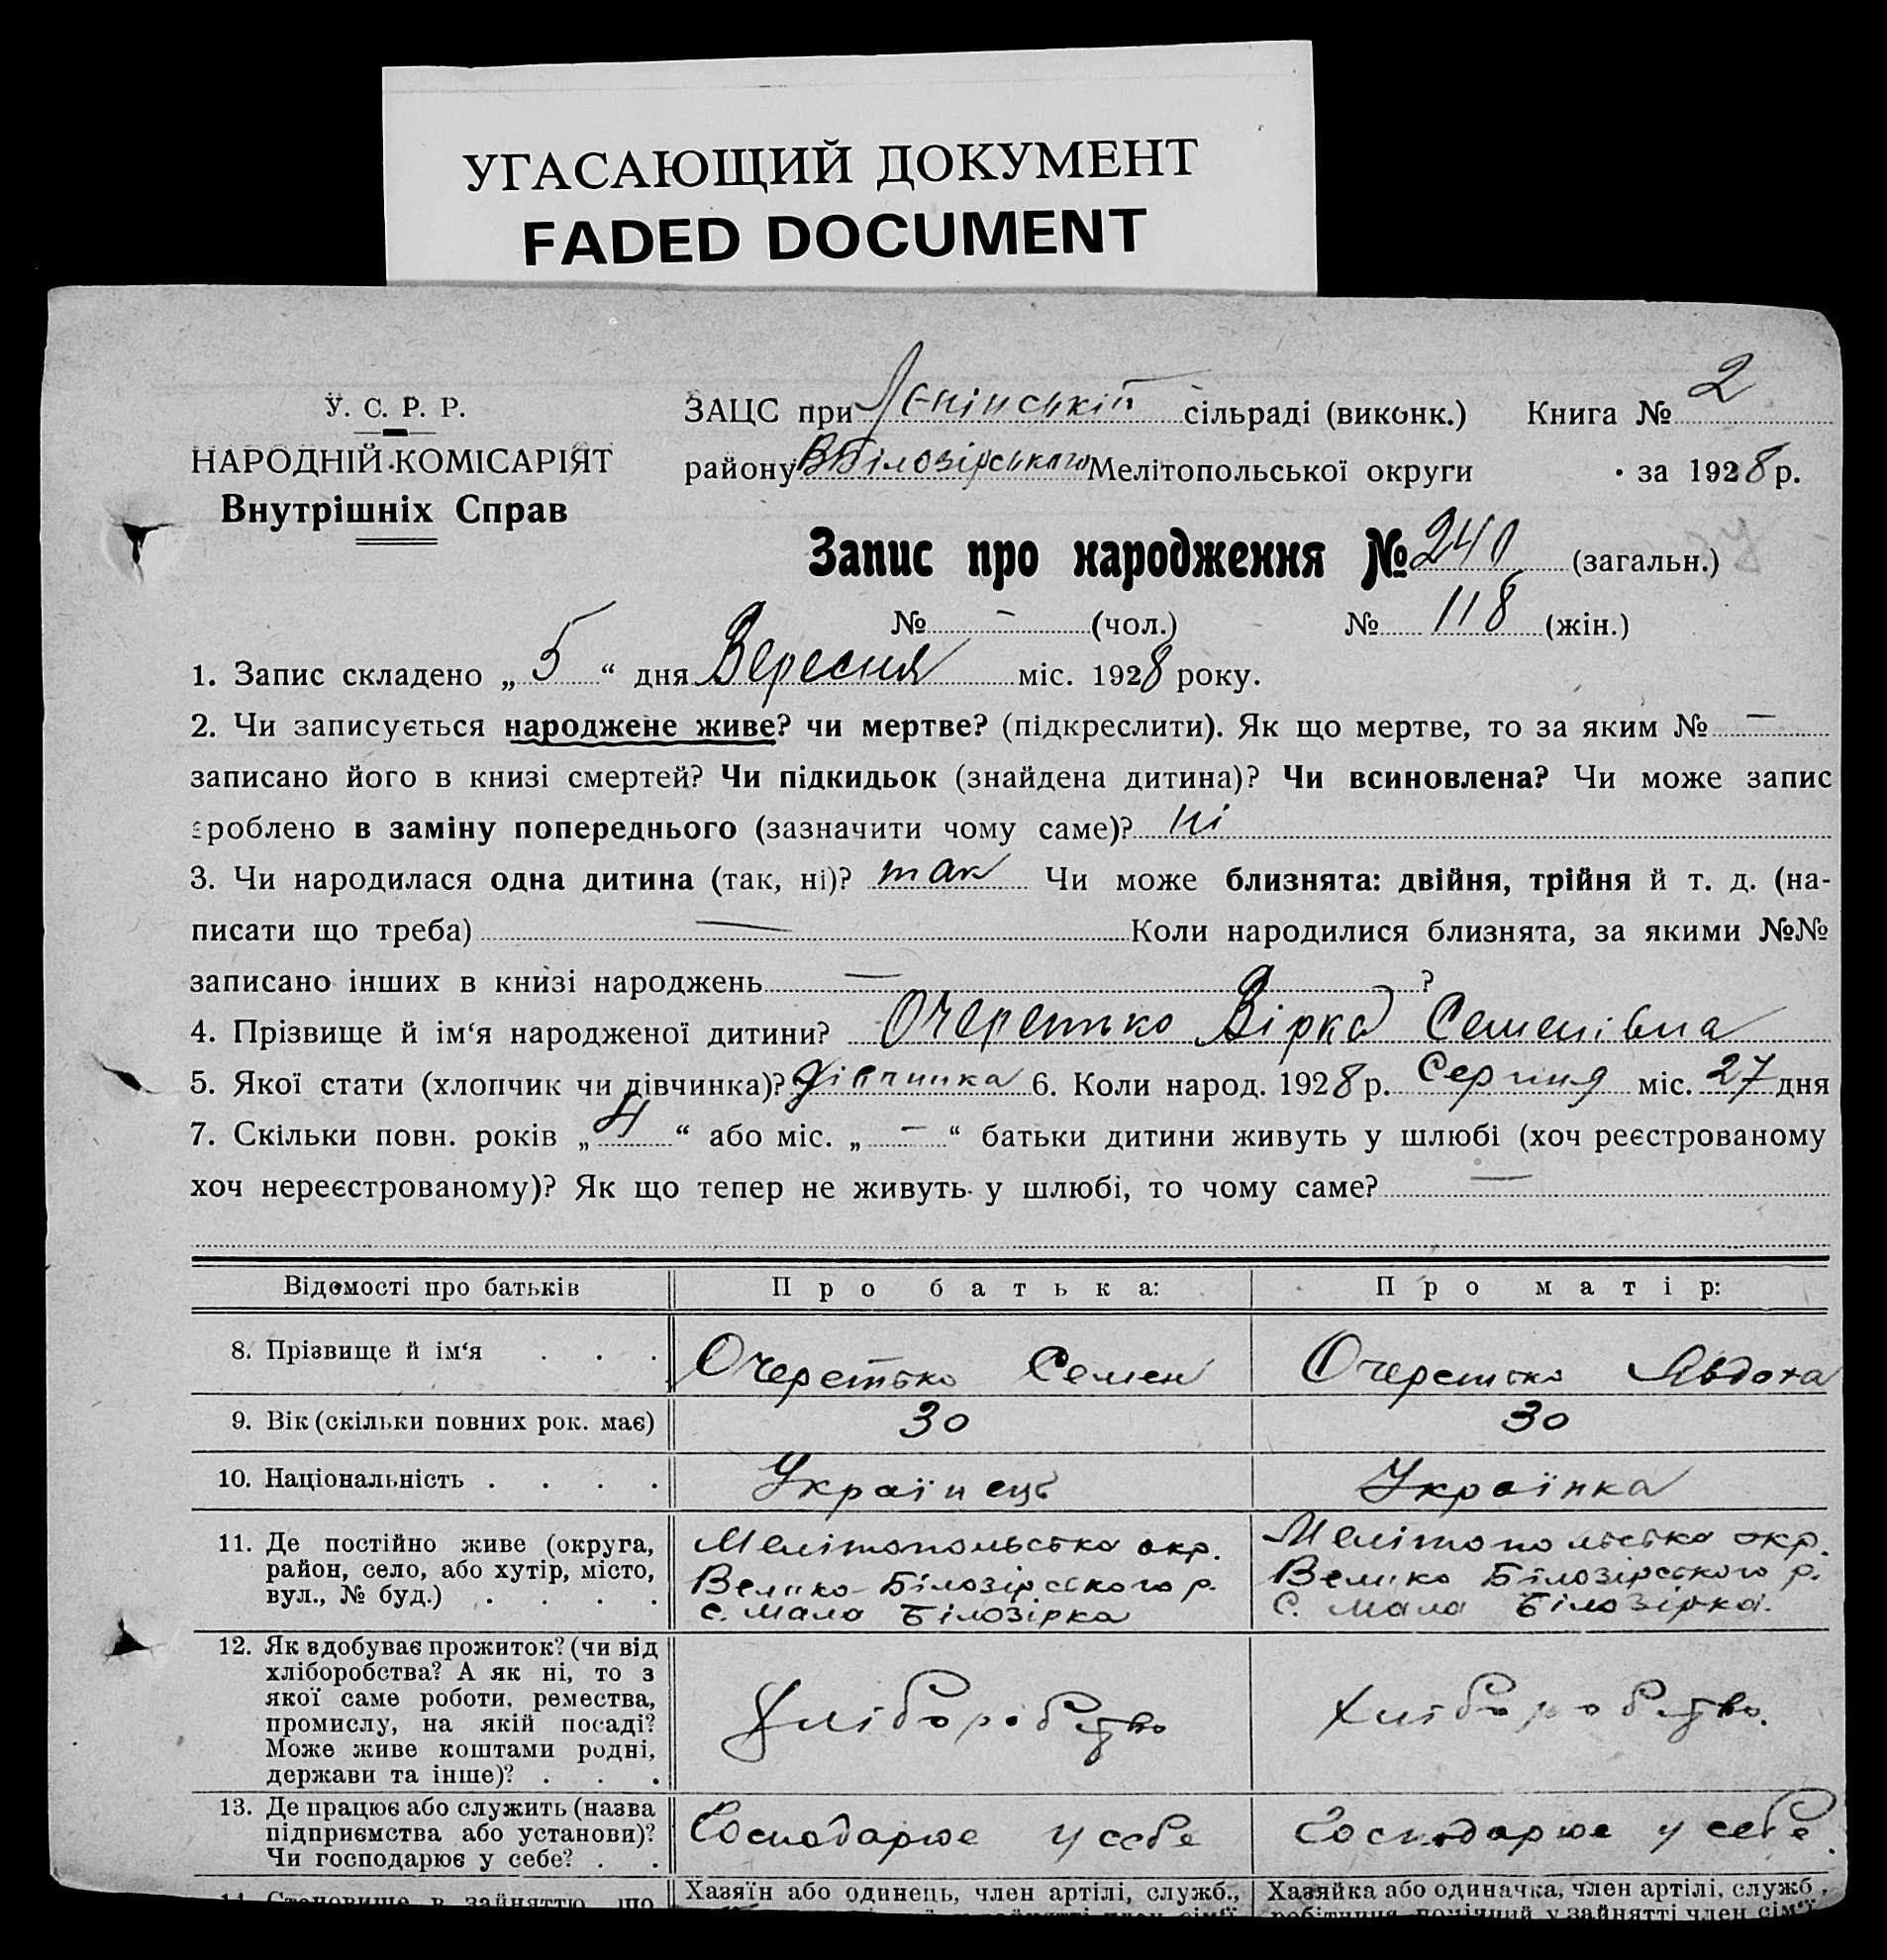 УГАСАЮЩИЙ ДОКУМЕНТ
FADED DOCUMENT
У. С. Р. Р.
НАРОДНІЙ КОМІСАРІЯТ
Внутрішніх Справ
ЗАЦС при Лєнінській сільраді (виконк.) Книга № 2
району ВБілозірського Мелітопольської округи за 1928 р.
Запис про народження № 240 (загальн.)
№ – (чол.) № 118 (жін.)
1. Запис складено „ 5 “ дня Вересня міс. 1928 року.
2. Чи записується народжене живе? чи мертве? (підкреслити). Як що мертве, то за яким № —
записано його в книзі смертей? Чи підкидьок (знайдена дитина)? Чи всиновлена? Чи може запис
зроблено в заміну попереднього (зазначити чому саме)? ні
3. Чи народилася одна дитина (так, ні)? так Чи може близнята: двійня, трійня й т. д. (на-
писати що треба) — Коли народилися близнята, за якими №№
записано інших в книзі народжень — ?
4. Прізвище й ім‘я народженої дитини? Очеретько Вірка Семенівна
5. Якої стати (хлопчик чи дівчинка)? дівчинка 6. Коли народ. 1928 р. Серпня міс. 27 дня
7. Скільки повн. років „ 4 “ або міс. „ – “ батьки дитини живуть у шлюбі (хоч реєстрованому
хоч нереєстрованому)? Як що тепер не живуть у шлюбі, то чому саме? —
Відомості про батьків Про батька: Про матір:
8. Прізвище й ім‘я . . . Очеретько Семен Очеретько Явдоха
9. Вік (скільки повних рок. має) 30 30
10. Національність . . . . Українець Українка
11. Де постійно живе (округа, Мелітопольська окр. Мелітопольська окр.
район, село, або хутір, місто, Велико-Білозірського р. Велико Білозірського р.
вул., № буд.) . . . . с. Мала Білозірка С. Мала Білозірка.
12. Як здобуває прожиток? (чи від
хліборобства? А як ні, то з
якої саме роботи, ремества,
промислу, на якій посаді? Хліборобство Хліборобство.
Може живе коштами родні,
держави та інше)? . . .
13. Де працює або служить (назва
підприємства або установи)? Господарює у себе Господарює у себе.
Чи господарює у себе? . .
14. Становище в зайняттю, що Хазяїн або одинець, член артілі, служб., Хазяйка або одиначка, член артілі, служб.,
робітниця, помічний у зайнятті член сім‘ї